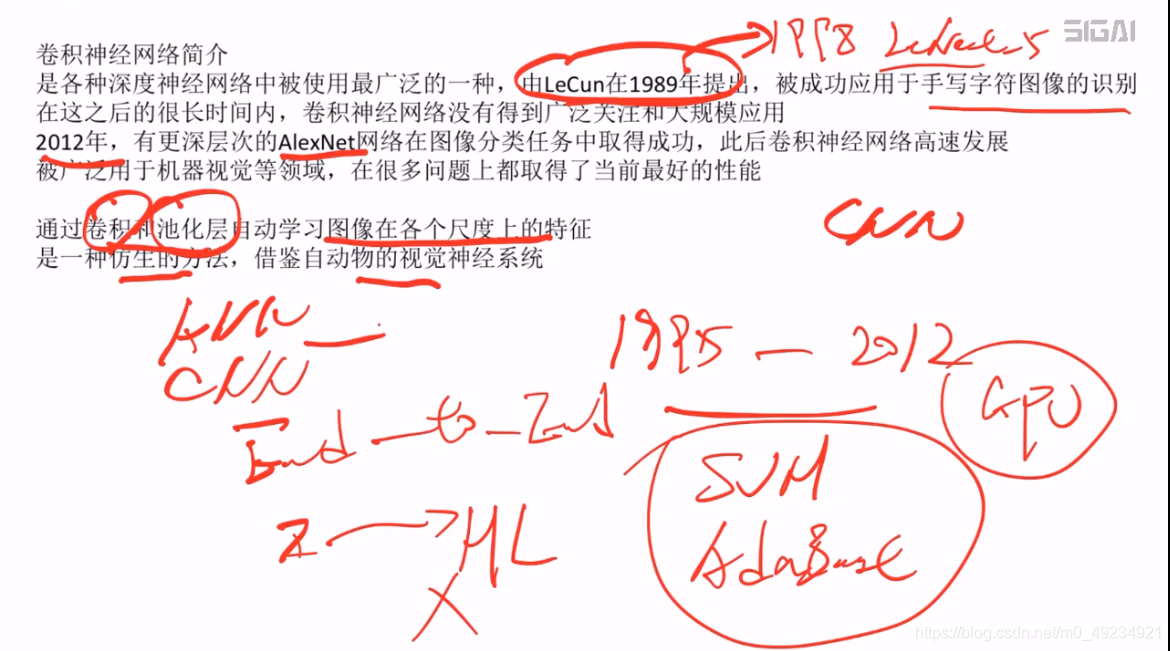 SIGAI
1998 LeNet-5
卷积神经网络简介
是各种深度神经网络中被使用最广泛的一种，由LeCun在1989年提出，被成功应用于手写字符图像的识别
在这之后的很长时间内，卷积神经网络没有得到广泛关注和大规模应用
2012年，有更深层次的AlexNet网络在图像分类任务中取得成功，此后卷积神经网络高速发展
被广泛用于机器视觉等领域，在很多问题上都取得了当前最好的性能
通过卷积和池化层自动学习图像在各个尺度上的特征
是一种仿生的方法，借鉴自动物的视觉神经系统
CNN
ANN
CNN
1995 — 2012
GPU
End-to-End
SVM
AdaBoost
ML
X
https://blog.csdn.net/m0_49234921